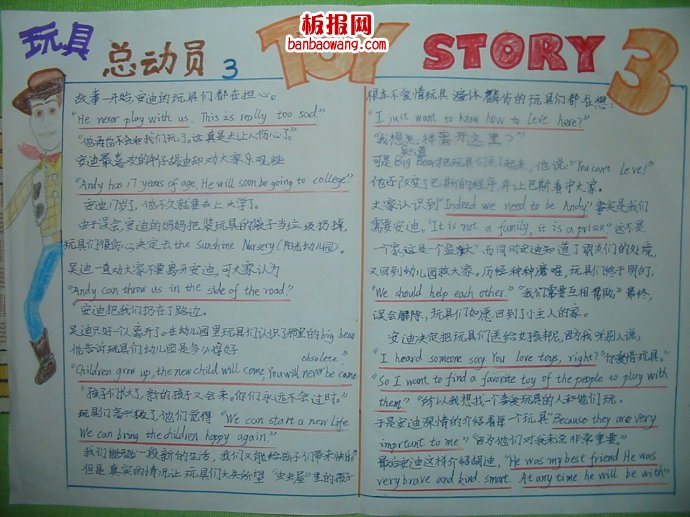 板报网
banbaowang.com
玩具
总动员 3
TOY STORY 3
故事一开始,安迪的玩具们都在担心。
"He never play with us. This is really too sad."
"他再也不会和我们玩了。这真是太让人伤心了"
安迪最喜欢的牛仔胡迪却劝大家乐观些
"Andy has 17 years of age, He will soon be going to college."
安迪17岁了,他不久就要去上大学了。
由于误会,安迪的妈妈把装玩具的袋子当垃圾扔掉,
玩具们很伤心决定去the sunshine Nursery(阳光幼儿园)。
吴迪一直劝大家不要离开安迪,可大家认为
"Andy can throw us in the side of the road"
安迪把我们扔在了路边。
吴迪只好一个人离开了。在幼儿园里玩具们认识了那里的big bear
他告诉玩具们幼儿园是多么得好
obsolete."
"Children grow up, the new child will come, You will never be came
"孩子们长大了,新的孩子又会来。你们永远不会过时。"
玩具们高兴极了他们觉得 "We can start a new life
We can bring the children happy again."
我们能开始一段新的生活,我们又能给孩子们带来快乐了
但是真实的情况让玩具们大失所望 "虫虫屋"里的孩子
根本不爱惜玩具 遍体鳞伤的玩具们都在想:
"I just want to know how to leve here?"
"我想知道怎样离开这里?"
可是Big Bear把玩具们关了起来,他说:"You can't leve!"
他还改变了巴斯的程序,并让巴斯看守大家。
大家认识到"Indeed we need to be Andy"事实是我们
需要安迪。"It is not a funily, it is a prison"这不是
一个家,这是一个监狱"而同时安迪知道了朋友们的处境,
又回到幼儿园救大家,历经种种磨难,玩具们终于明白,
"We should help each other." "我们需要互相帮助"最终,
误会解除,玩具们如愿回到小主人的家。
安迪决定把玩具们送给女孩邦尼,因为我听别人说,
"I heard someone say You love toys, right?"你爱惜玩具。"
"So I want to find a favorite toy of the people to play with
them" "所以我想找一个喜爱玩具的人和他们玩。
于是安迪深情的介绍着每一个玩具"Because they are very
important to me" "因为他们对我来说非常重要。"
最后安迪这样介绍胡迪,"He was my best friend He was
very brave and kind. smart. At any time he will be with"